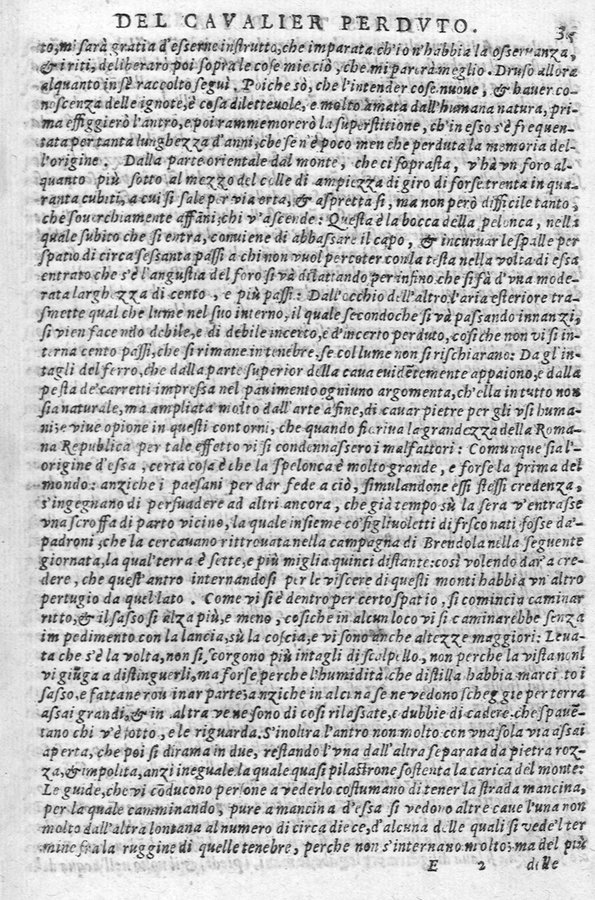 DEL CAVALIER PERDVTO. 35
to, mi sarà gratia d'esserne instrutto, che imparata ch'io n'habbia la osservanza,
& i riti, deliberarò poi sopra le cose mie ciò, che mi parerà meglio. Druso allora
alquanto in sè raccolto seguì. Poiche sò, che l'intender cose nuoue, & hauer co-
noscenza delle ignote, è cosa diletteuole, e molto amata dall'humana natura, pri-
ma effiggierò l'antro, e poi rammemorerò la superstitione, ch'in esso s'è frequen-
tata per tanta lunghezza d'anni, che se n'è poco men che perduta la memoria del-
l'origine. Dalla parte orientale dal monte, che ci soprasta, v'hà vn foro al-
quanto più sotto al mezzo del colle di ampiezza di giro di forse trenta in qua-
ranta cubiti, a cui si sale per via erta, & aspretta sì, ma non però difficile tanto,
che souerchiamente affani, chi v'ascende: Questa è la bocca della pelonca, nella
quale subito che si entra, conuiene di abbassare il capo, & incuruar le spalle per
spatio di circa sessanta passi a chi non vuol percoter con la testa nella volta di essa
entrato che s'è l'angustia del foro si và dilattando per infino che si fà d'vna mode-
rata larghezza di cento, e più passi: Dall'occhio dell'altro l'aria esteriore tra-
smette qual che lume nel suo interno, il quale secondo che si và passando innanzi,
si vien facendo debile, e di debile incerto, e d'incerto perduto, così che non vi si in-
terna cento passi, che si rimane in tenebre. se col lume non si rischiarano: Da gl'in-
tagli del ferro, che dalla parte superior della caua euidẽtemente appaiono, e dalla
pesta de' carretti impressa nel pauimento ogniuno argomenta, ch'ella in tutto non
sia naturale, ma ampliata molto dall'arte a fine, di cauar pietre per gli vsi huma-
ni; e viue opione in questi contorni, che quando fioriua la grandezza della Roma-
na Republica per tale effetto vi si condennassero i malfattori: Comunque sia l'o-
rigine d'essa, certa cosa è che la spelonca è molto grande, e forse la prima del
mondo: anziche i paesani per dar fede a ciò, simulandone essi stessi credenza,
s'ingegnano di persuadere ad altri ancora, che già tempo sù la sera v'entrasse
vna scroffa di parto vicino, la quale insieme co' figliuoletti di fresco nati fosse da'
padroni, che la cercauano rittrouata nella campagna di Brendola nella seguente
giornata, la qual terra è sette, e più miglia quinci distante: così volendo dar a cre-
dere, che quest'antro internandosi per le viscere di questi monti habbia vn'altro
pertugio da quel lato. Come vi si è dentro per certo spatio, si comincia caminar
ritto, & il sasso si alza più, e meno, cosiche in alcun loco vi si caminarebbe senza
impedimento con la lancia, sù la coscia, e vi sono anche altezze maggiori: Leua-
ta che s'è la volta, non si scorgono più intagli di scalpello, non perche la vista non
vi giũga a distinguerli, ma forse perche l'humidità che distilla habbia marcito i
sasso, e fattane rouinar parte: anziche in alcina se ne vedono scheggie per terra
assai grandi, & in altra ve ne sono di così rilassate, e dubbie di cadere, che spauẽ-
tano chi v'è sotto, e le riguarda. S'inoltra l'antro non molto con vna sola via assai
aperta, che poi si dirama in due, restando l'vna dall'altra separata da pietra roz-
za, & impolita, anzi ineguale, la quale quasi pilastrone sostenta la carica del monte:
Le guide, che vi cõducono persone a vederlo costumano di tener la strada mancina,
per la quale camminando, pure a mancina d'essa si vedono altre caue l'una non
molto dall'altra lontana al numero di circa diece, d'alcuna delle quali si vede'l ter
mine fra la ruggine di quelle tenebre, perche non s'internano molto; ma del più
E 2 delle